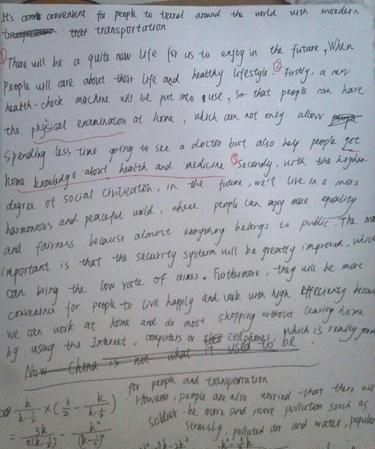 It's convenient for people to travel around the world with mordern
that transportation
There will be a quite new life for us to enjoy in the future, When
people will care about their life and healthy lifestyle. Firstly, a new
health-check machine will be put into use, so that people can have
the physical examination at home, which can not only allow people
spending less time going to see a doctor but also help people get
some knowledge about health and medicine. Secondly, with the higher
degree of social civilization, in the future, we'll live in a more
harmonous and peaceful world, where people can enjoy more equality
and fairness because almost everything belongs to public. The
important is that the security system will be greatly improved, which
can bring the low rate of crimes. Futhermore, they will be more
convenience for people to live happily and work with high efficiency because
we can work at home and do most shopping without leaving home
by using the Internet, computers or cellphones, which is really
Now China is not what it used to be
for people and transportation
However, people are also worried that there will
be more and more pollution such as
seriously, polluted air and water,